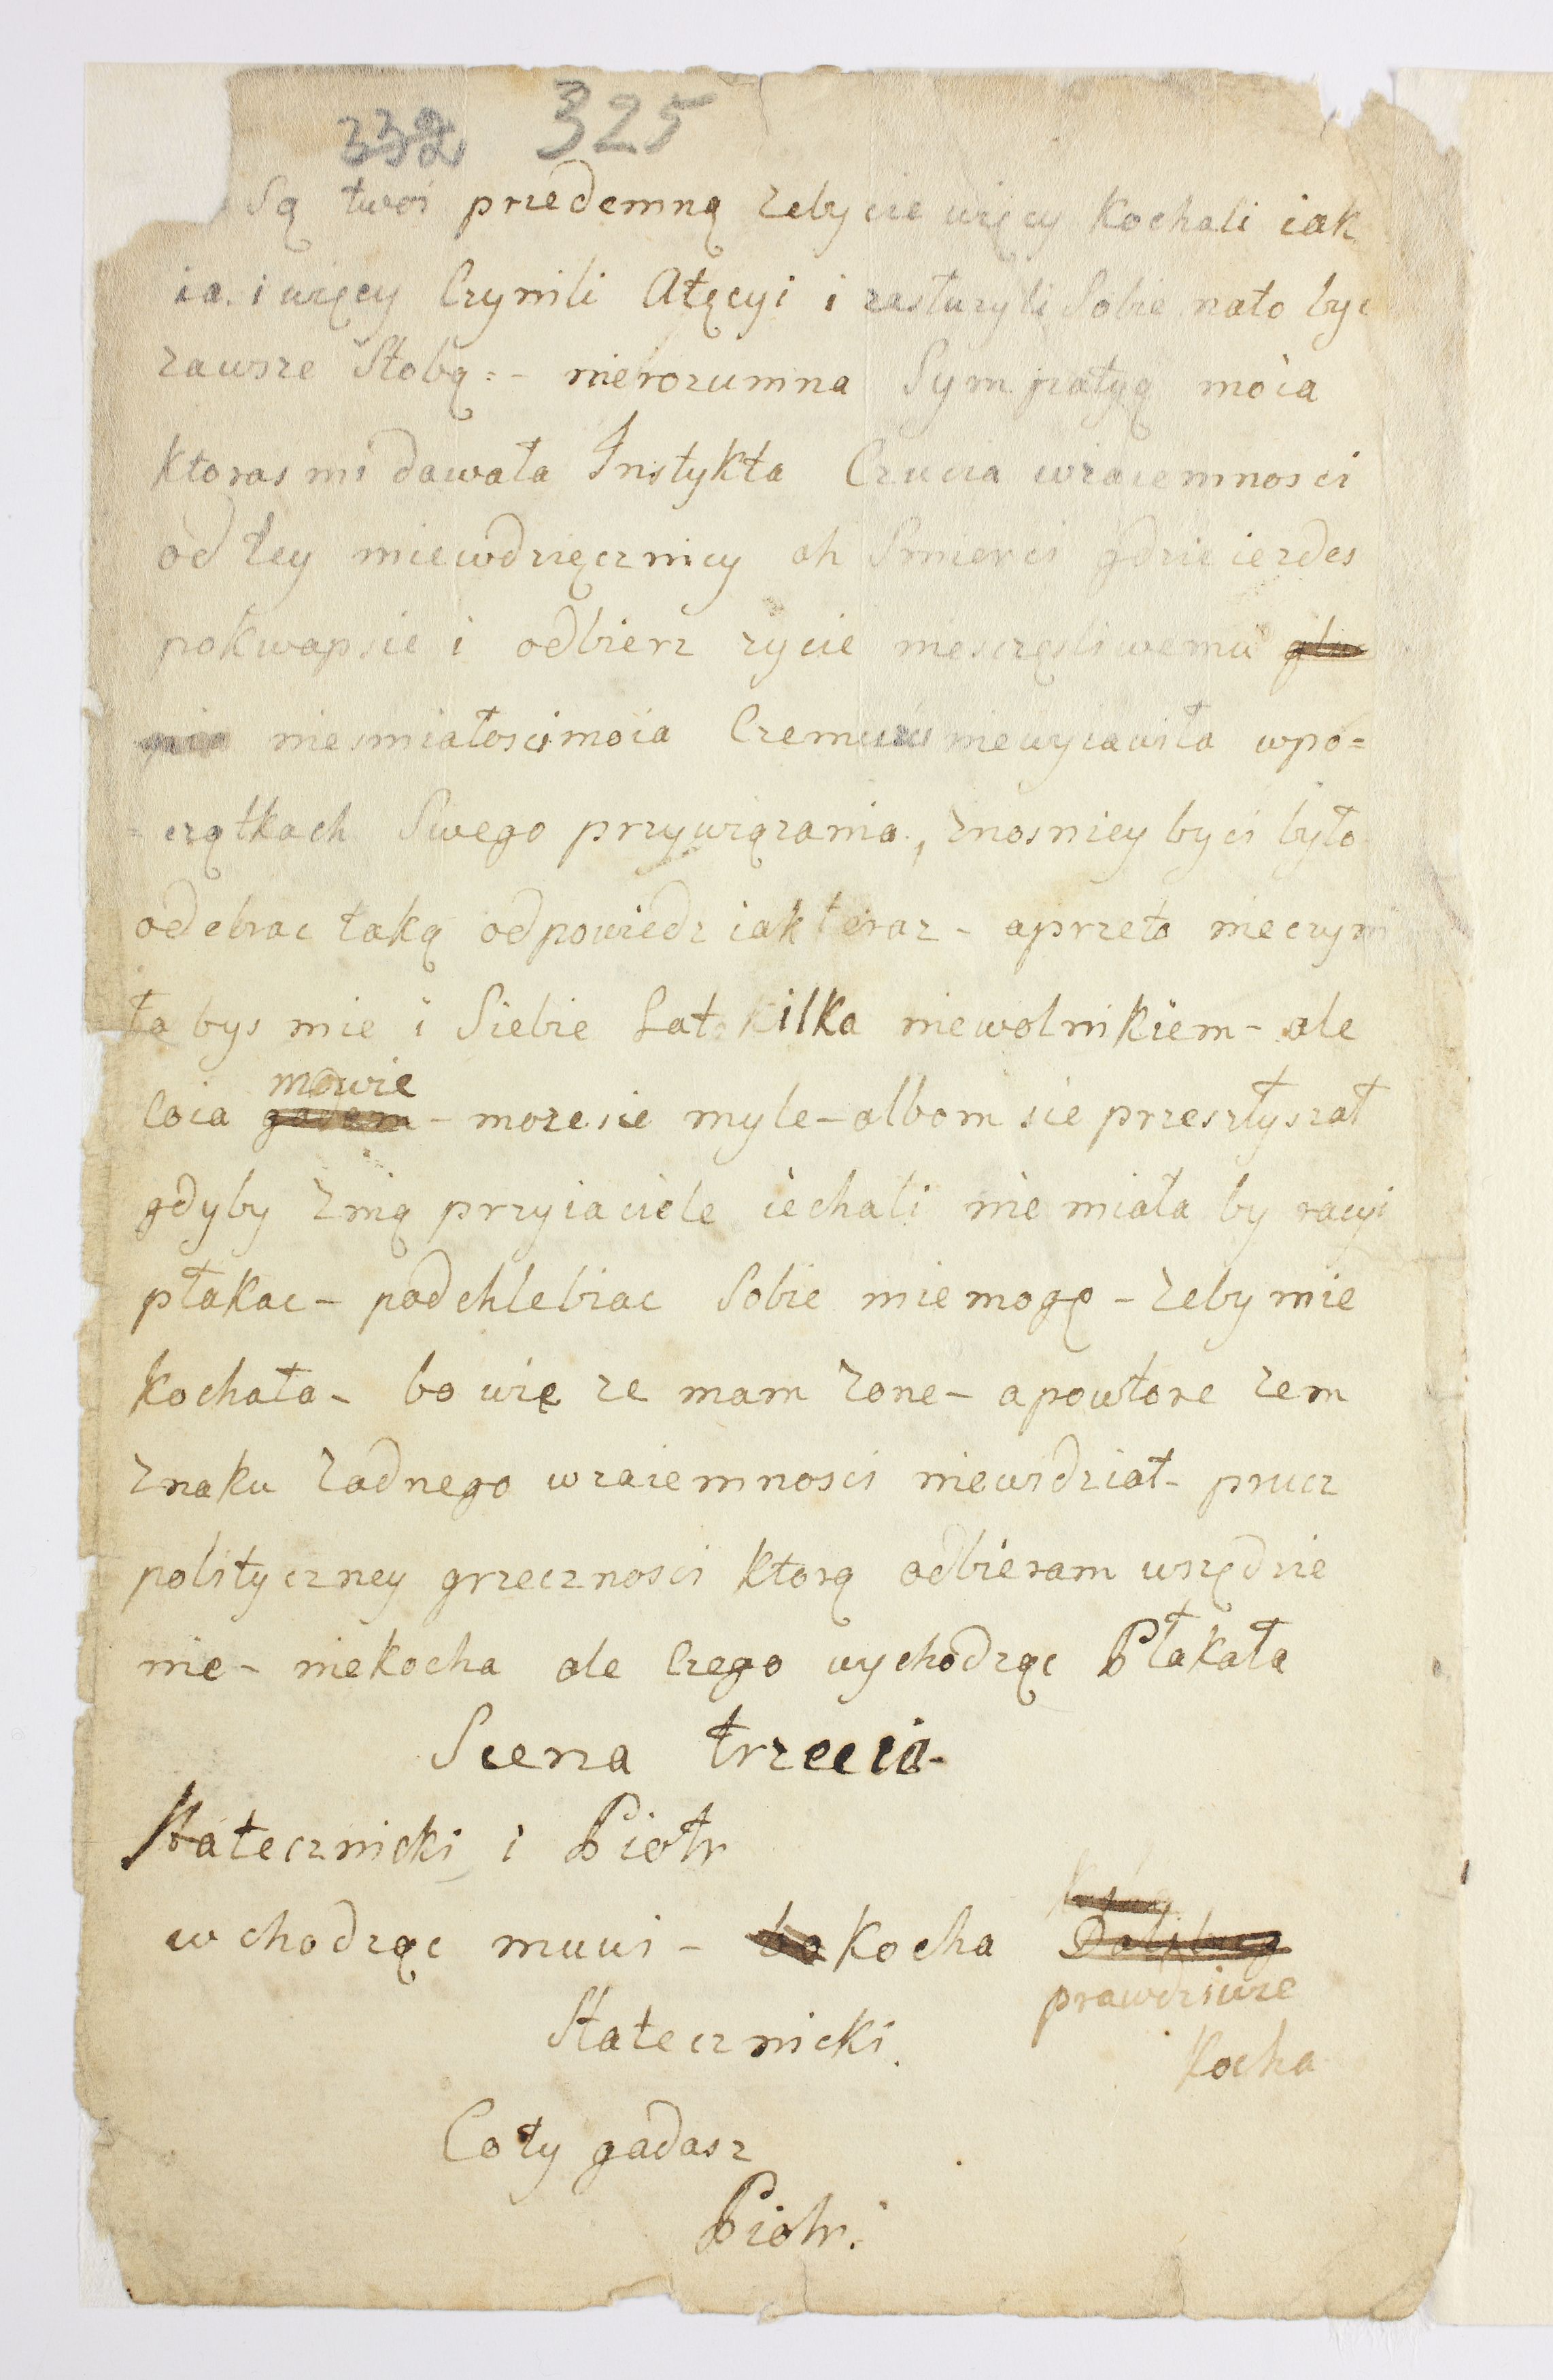 332 325
są twoi przedemną zeby cie więcy kochali iak
ia. i więcy Czynili Atęcyi i zasłuzyli Sobie nato byc
zawsze Stobą =- nierozumna Sympatyą moia
ktoras mi dawała Instykta Czucia wzaiemnosci
od tey niewdzięcznicy ah Smierci gdzie iezdes
pokwapsie i odbierz zycie niesczęsliwemu
niesmiałosci moia Czemus niewyiawiła wpo=
=czątkach Swego przywiązania, znosniey byci było
odebrac taką odpowiedz iak teraz - aprzeto nieczyni
ła bys mie i Siebie Lat kilka niewolnikiem - ale
mowie
Coia gadam - moze sie myle - albom sie przesłyszał
gdyby znią przyiaciele iechali nie miała by racyi
płakac - podchlebiac Sobie niemogę - zeby mie
kochała - bo wię ze mam zone - apowtore zem
znaku zadnego wzaiemnosci niewidział - prucz
polityczney grzecznosci ktorą odbieram wszędzie
nie - niekocha ale Czego wychodząc Płakała
Scena trzecia -
Statecznicki i Piotr
wchodząc muwi - bo kocha
prawdziwie
kocha
Statecznicki.
Coty gadasz
Piotr.